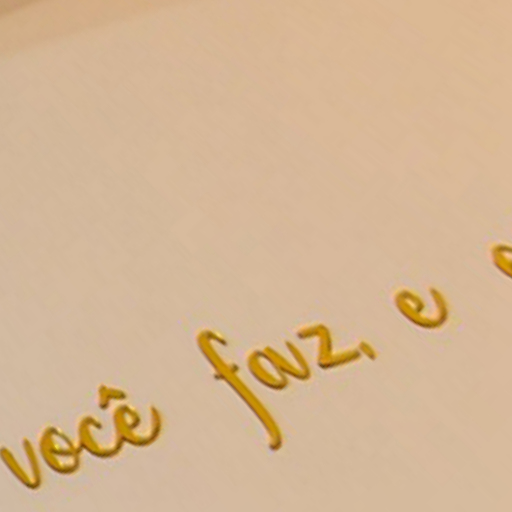 você faz, e